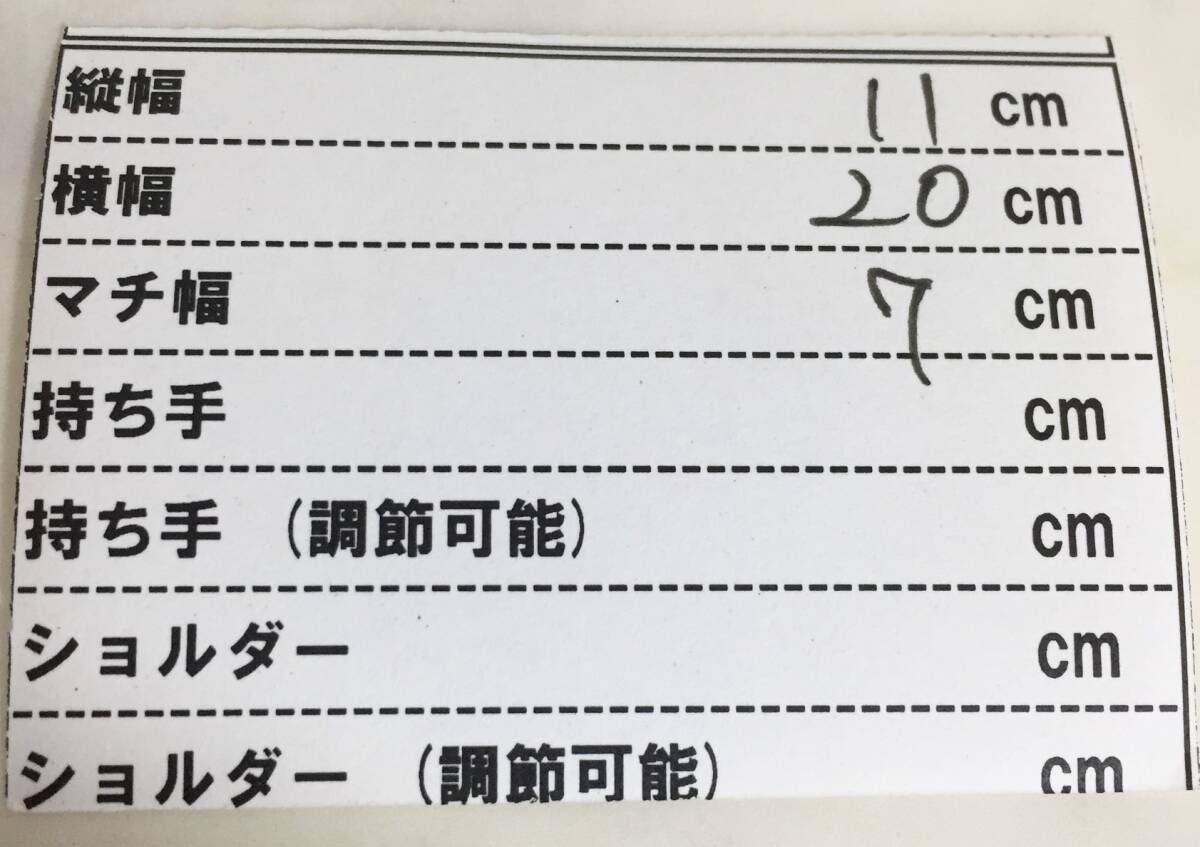 縦幅 11 cm
横幅 20 cm
マチ幅 7 cm
持ち手 cm
持ち手 (調節可能) cm
ショルダー cm
ショルダー (調節可能) cm